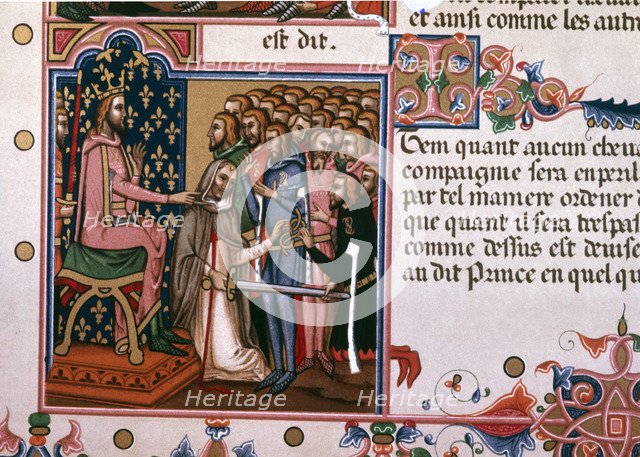 est dit.
et ainsi comme les autre
Item quant aucun cheua
compaignie sera en peril
par tel maniere ordener d
que quant il sera trespa
comme dessus est deuise
au dit Prince en quel qu
Heritage Heritage
Heritage Heritage
Heritage Heritage
Heritage Heritage